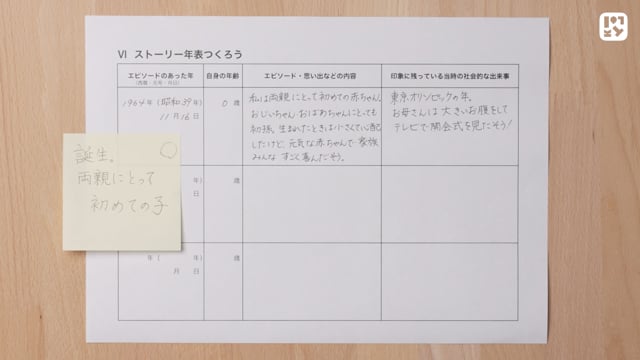 VI ストーリー年表つくろう
エピソードのあった年
(西暦・元号・月日)
自身の年齢
エピソード・思い出などの内容
印象に残っている当時の社会的な出来事
1964年(昭和39年)
11月16日
0 歳
私は両親にとって初めての赤ちゃん。
おじいちゃん、おばあちゃんにとっても
初孫。生まれたときは小さくて心配
したけど、元気な赤ちゃんで家族
みんな すごく喜んだそう。
東京オリンピックの年。
お母さんは大きいお腹をして
テレビで開会式を見たそう!
誕生。
両親にとって
初めての子
年)
日
歳
年( 年)
月 日
歳